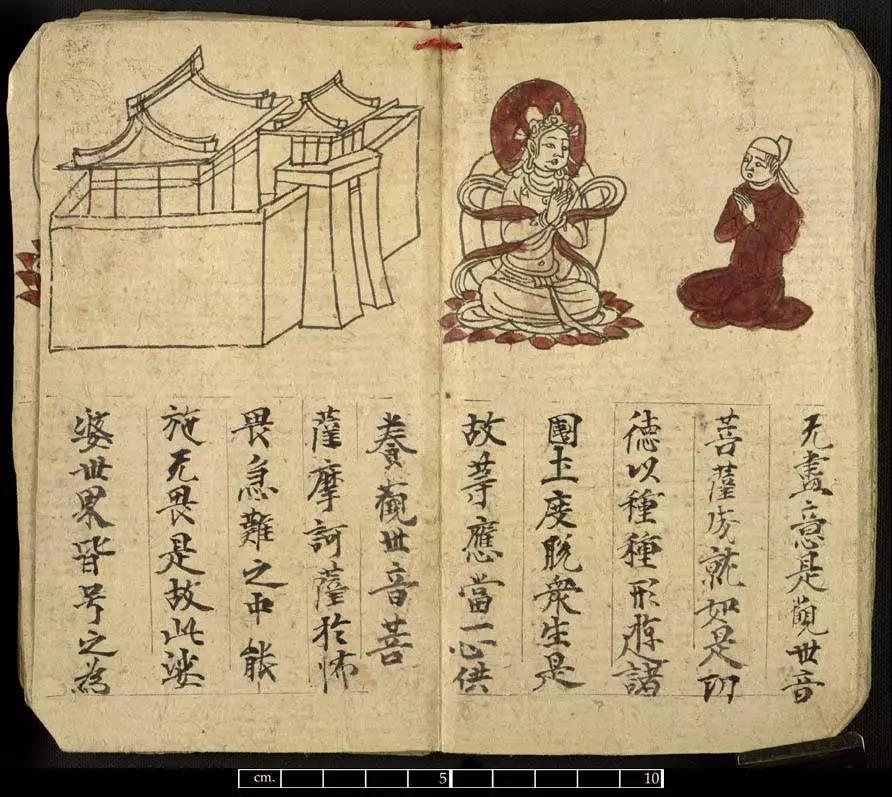 无盡意是觀世音
菩薩成就如是功
德以種種形遊諸
國土度脱衆生是
故等應當一心供
養觀世音菩
薩摩訶薩於怖
畏急難之中能
施无畏是故此娑
婆世界皆号之為
cm. 5 10